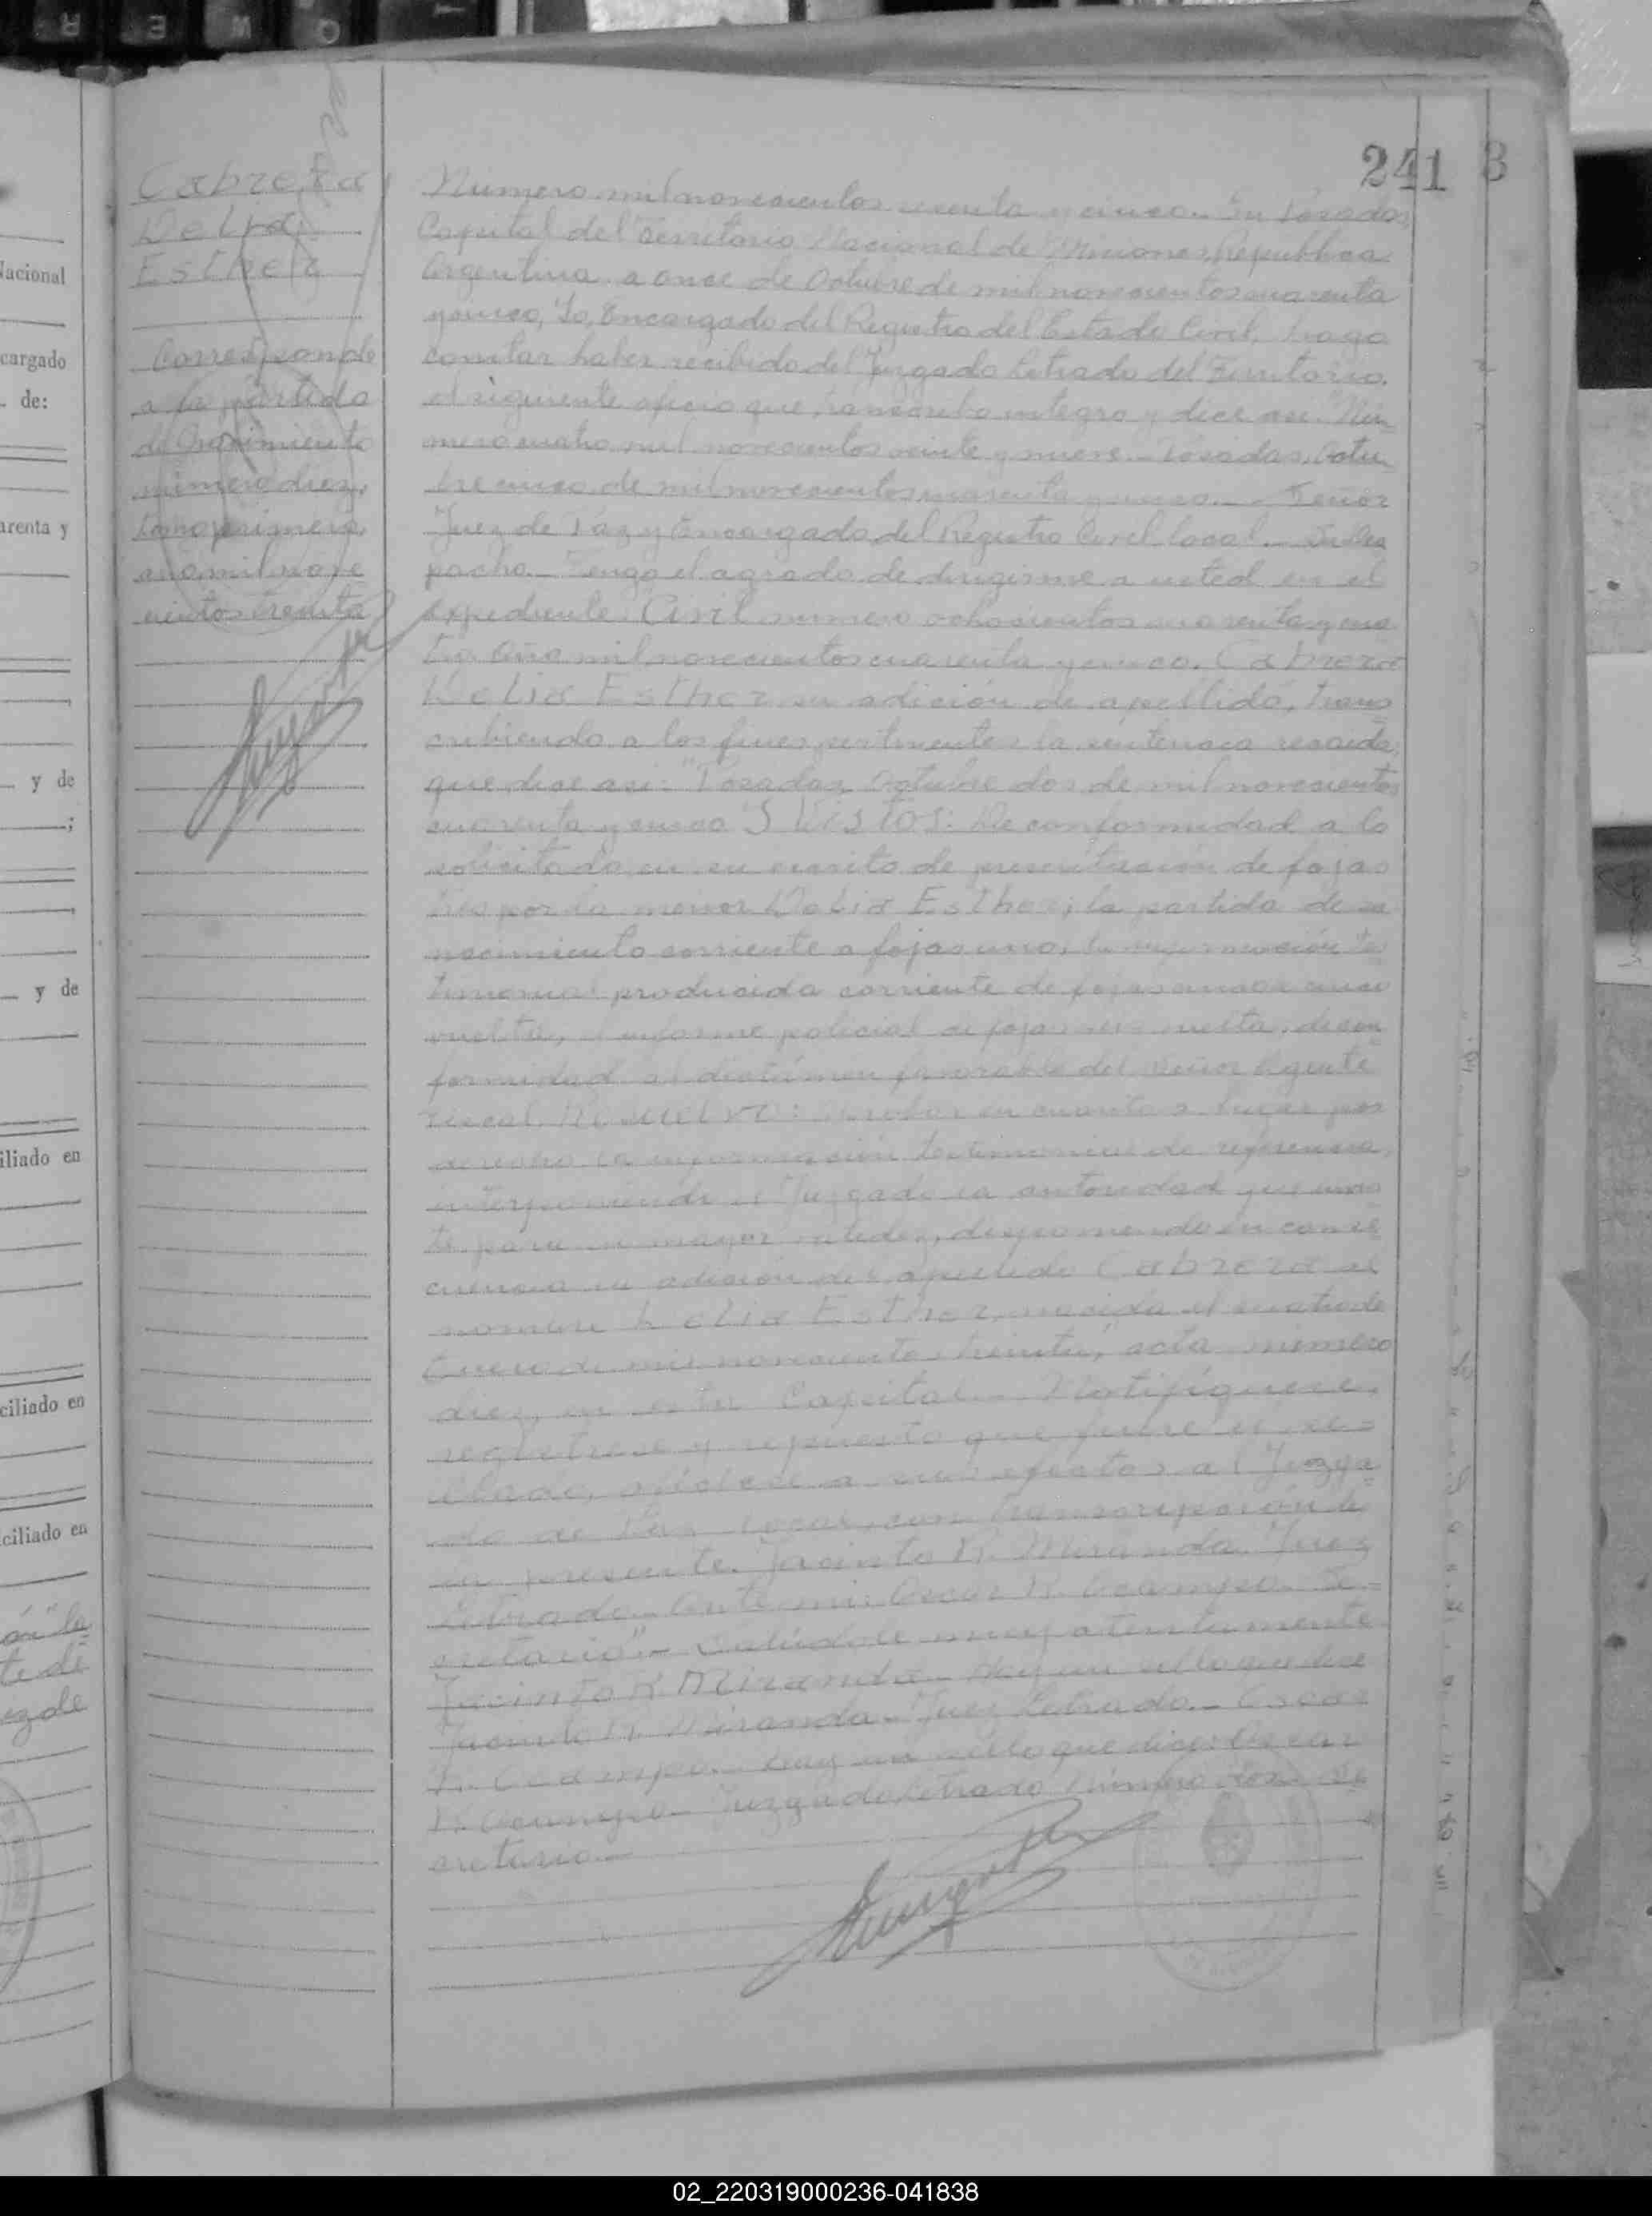 241 B
Cabrera
Delia
Esther
Corresponde
a la partida
de Nacimiento
número diez,
tomo primero,
año mil nove=
cientos treinta
Número mil novecientos sesenta y cinco. En Posadas,
Capital del Territorio Nacional de Misiones, Republica
Argentina, a once de Octubre de mil novecientos cuarenta
y cinco, Yo, Encargado del Registro del Estado Civil, hago
constar haber recibido del Juzgado Letrado del Territorio,
el siguiente oficio que, transcribo integro y dice asi: "Nú=
mero cuatro mil novecientos veinte y nueve.- Posadas, Octu
bre cinco de mil novecientos cuarenta y cinco.- Señor
Juez de Paz y Encargado del Registro Civil local.- Su Des
pacho.- Tengo el agrado de dirigirme a usted en el
expediente Civil numero ochocientos cuarenta y cua
tro año mil novecientos cuarenta y cinco, Cabrera
Delia Esther su adición de apellido, trans
cribiendo a los fines pertinentes la sentencia recaida,
que dice asi: "Posadas, Octubre dos de mil novecientos
cuarenta y cinco Y VISTOS: De conformidad a lo
solicitado en su escrito de presentación de fojas
tres por la menor Delia Esther; la partida de su
nacimiento corriente a fojas uno, la información tes
timonial producida corriente de fojas cinco a cinco
vuelta, el informe policial de fojas seis vuelta, de con
formidad al dictámen favorable del Señor Agente
Fiscal, Resuelvo: Aprobar en cuanto a lugar por
derecho la información testimonial de referencia,
interponiendo el Juzgado la autoridad que inves
te para su mayor validez, disponiendo en conse
cuencia la adición del apellido Cabrera al
nombre Delia Esther, nacida el cuatro de
Enero de mil novecientos treinta, acta número
diez, en esta Capital.- Notifíquese,
registrese y repuesto que fuere el se=
llado, ofíciese a sus efectos al Juzga=
do de Paz local, con transcripción de
la presente. Jacinto R. Miranda. Juez
Letrado.- Ante mi: Oscar R. Ocampo. Se=
cretario".- Salúdole muy atentamente
Jacinto R Miranda.- Hay un sello que dice
Jacinto R. Miranda.- Juez Letrado.- Oscar
R. Ocampo.- Hay un sello que dice: Oscar
R. Ocampo.- Juzgado Letrado Número dos.- Se
cretario.-
Nacional
cargado
de:
arenta y
y de
;
y de
iliado en
ciliado en
ciliado en
02_220319000236-041838